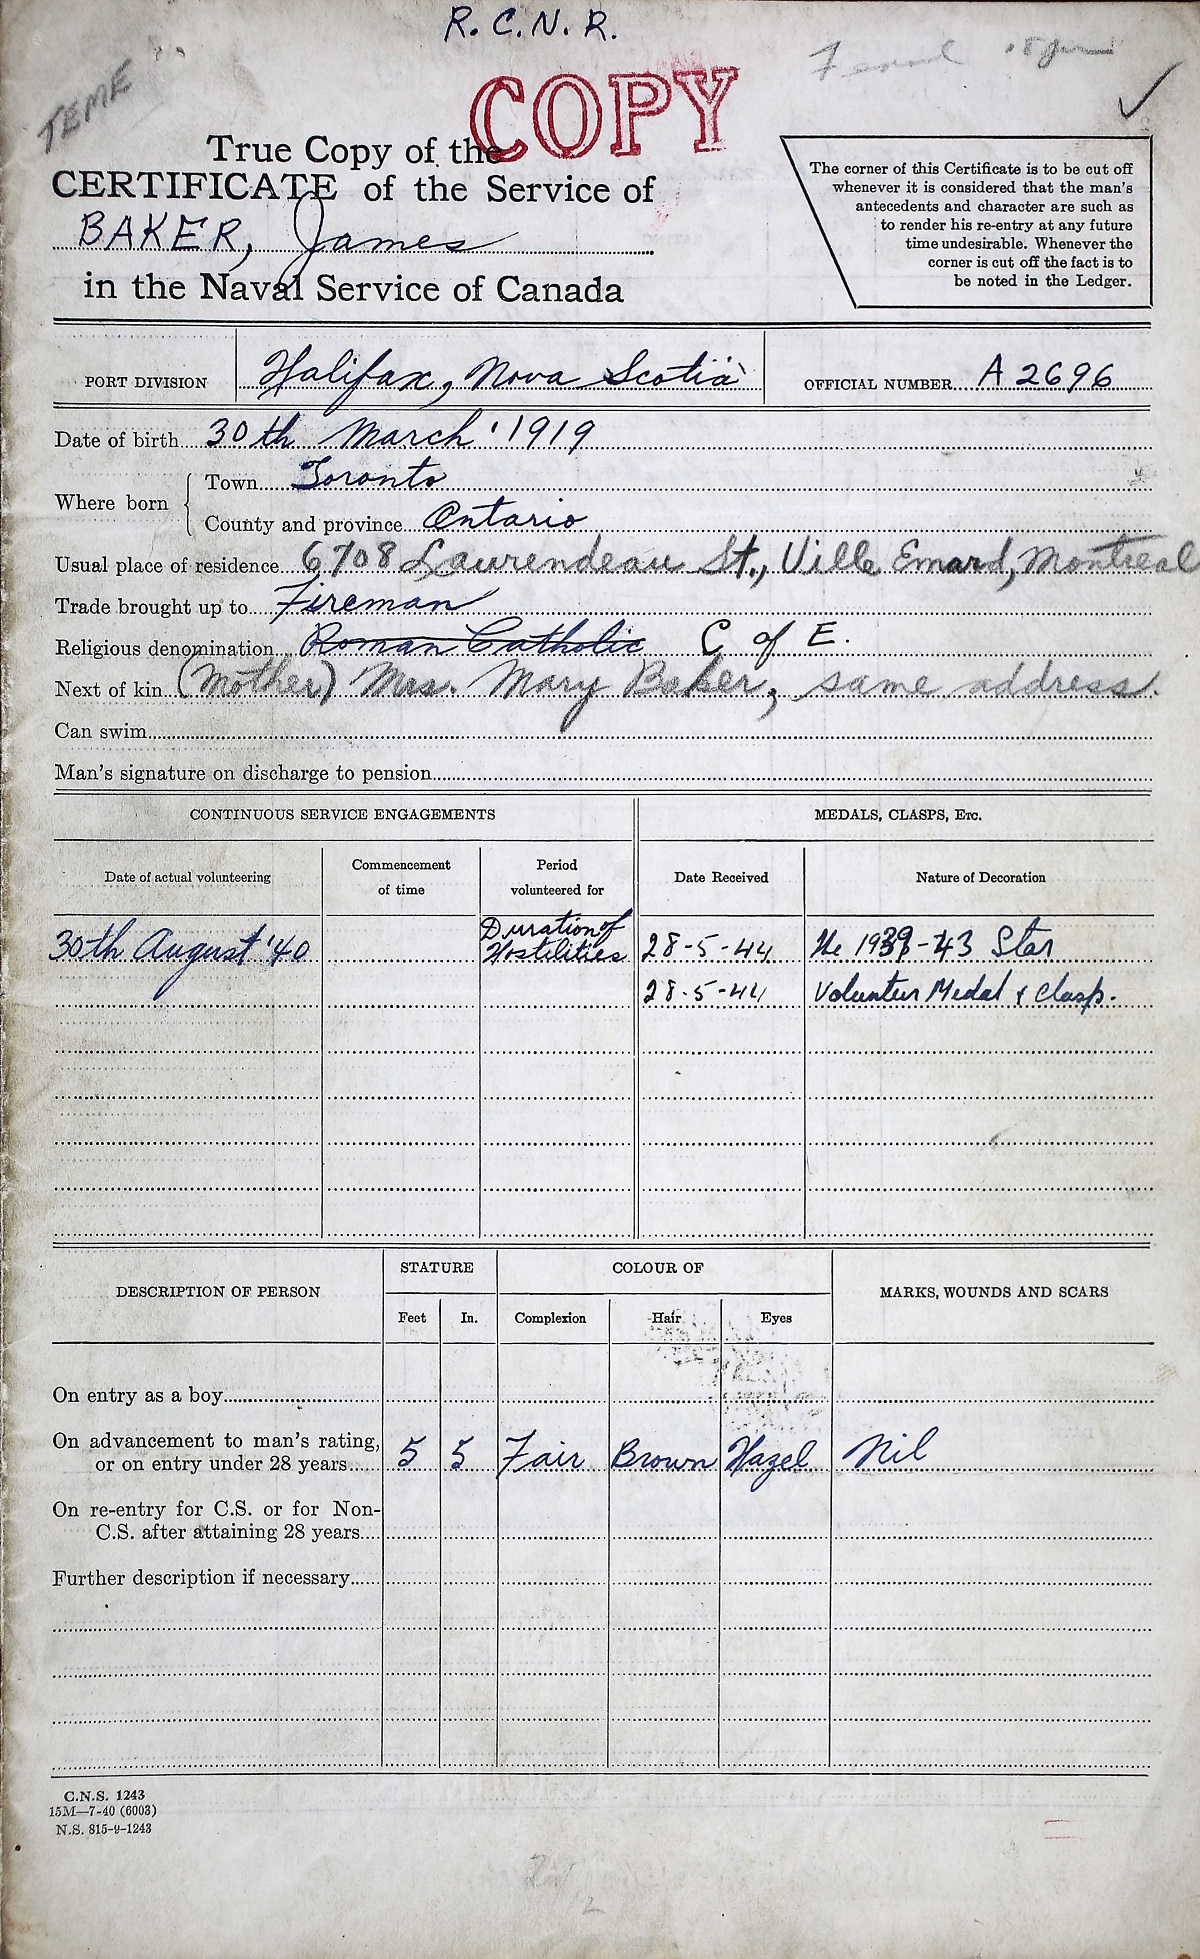 R. C. N. R.
TEME
COPY
True Copy of the
CERTIFICATE of the Service of
BAKER, James
in the Naval Service of Canada
The corner of this Certificate is to be cut off
whenever it is considered that the man's
antecedents and character are such as
to render his re-entry at any future
time undesirable. Whenever the
corner is cut off the fact is to
be noted in the Ledger.
PORT DIVISION Halifax, Nova Scotia OFFICIAL NUMBER A 2696
Date of birth 30th March '1919
Where born Town Toronto
County and province Ontario
Usual place of residence 6708 Laurendeau St., Ville Emard, Montreal
Trade brought up to Fireman
Religious denomination Roman Catholic C of E.
Next of kin (Mother) Mrs. Mary Baker, same address.
Can swim
Man's signature on discharge to pension
CONTINUOUS SERVICE ENGAGEMENTS MEDALS, CLASPS, Etc.
Date of actual volunteering Commencement of time Period volunteered for Date Received Nature of Decoration
30th August '40 Duration of Hostilities 28-5-44 The 1939-43 Star
28-5-44 Volunteer Medal & Clasp.
DESCRIPTION OF PERSON STATURE COLOUR OF MARKS, WOUNDS AND SCARS
Feet In. Complexion Hair Eyes
On entry as a boy
On advancement to man's rating,
or on entry under 28 years 5 5 Fair Brown Hazel Nil
On re-entry for C.S. or for Non-
C.S. after attaining 28 years
Further description if necessary
C.N.S. 1243
15M—7-40 (6003)
N.S. 815-9-1243